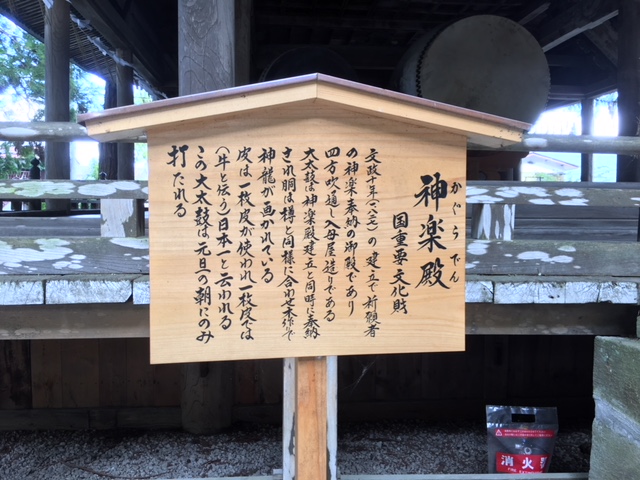 かぐらでん
神楽殿
国重要文化財
文政十年(一八二七)の建立で祈願者
の神楽奉納の御殿であり
四方吹通し入母屋造りである
大太鼓は神楽殿建立と同時に奉納
され胴は樽と同様に合わせ木作で
神龍が画かれている
皮は一枚皮が使われ一枚皮では
(牛と伝う)日本一と云われる
この大太鼓は元旦の朝にのみ
打たれる
消火